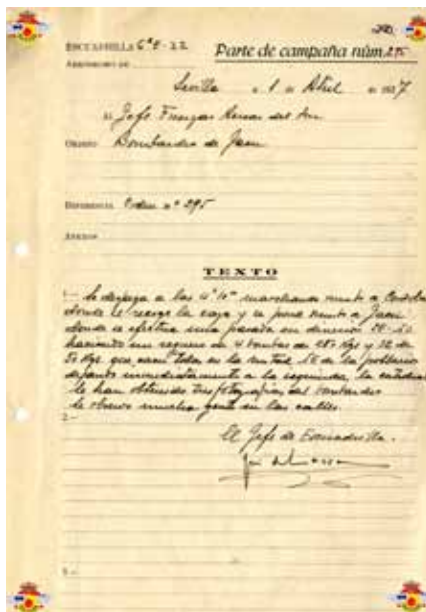 ESCUADRILLA 6ª E-22 Parte de campaña núm. 295
AERODROMO DE
Sevilla a 1 de Abril de 1937
Al Jefe Fuerzas Aereas del Sur
OBJETO Bombardeo de Jaen
REFERENCIA Orden nº 295
ANEXOS
TEXTO
1.— Se despega a las marchando rumbo a Cordoba
donde se recoge la caza y se pone rumbo a Jaen
donde se efectua una pasada en direccion
haciendo un reguero de 4 bombas de 250 Kgs y 32 de
50 Kgs que caen todas en la mitad de la poblacion
dejando inmediatamente a la izquierda, la catedral
Se han obtenido tres fotografias del bombardeo
Se observo mucha gente en las calles.
2.—
El Jefe de Escuadrilla.
3.—